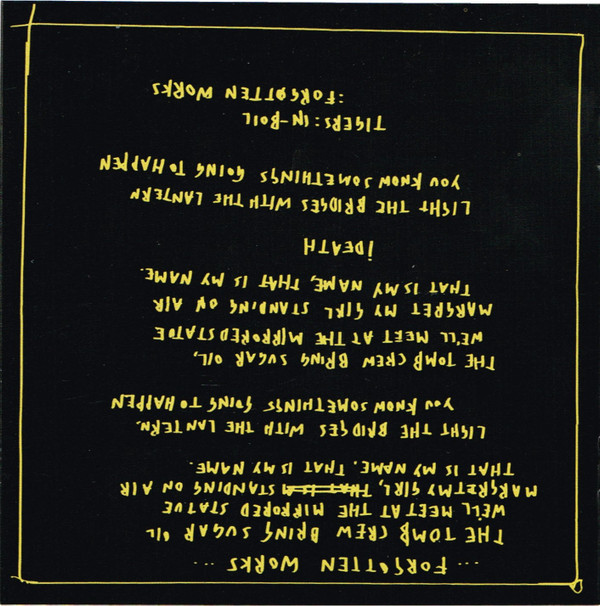 ... FORGOTTEN WORKS ...
THE TOMB CREW BRING SUGAR OIL
WE'LL MEET AT THE MIRRORED STATUE
MARGRET MY GIRL, THAT IS M STANDING ON AIR
THAT IS MY NAME. THAT IS MY NAME.
LIGHT THE BRIDGES WITH THE LANTERN.
YOU KNOW SOMETHINGS GOING TO HAPPEN
THE TOMB CREW BRING SUGAR OIL,
WE'LL MEET AT THE MIRRORED STATUE
MARGRET MY GIRL STANDING ON AIR
THAT IS MY NAME, THAT IS MY NAME.
iDEATH
LIGHT THE BRIDGES WITH THE LANTERN
YOU KNOW SOMETHINGS GOING TO HAPPEN
TIGERS: IN-BOIL
:FORGOTTEN WORKS